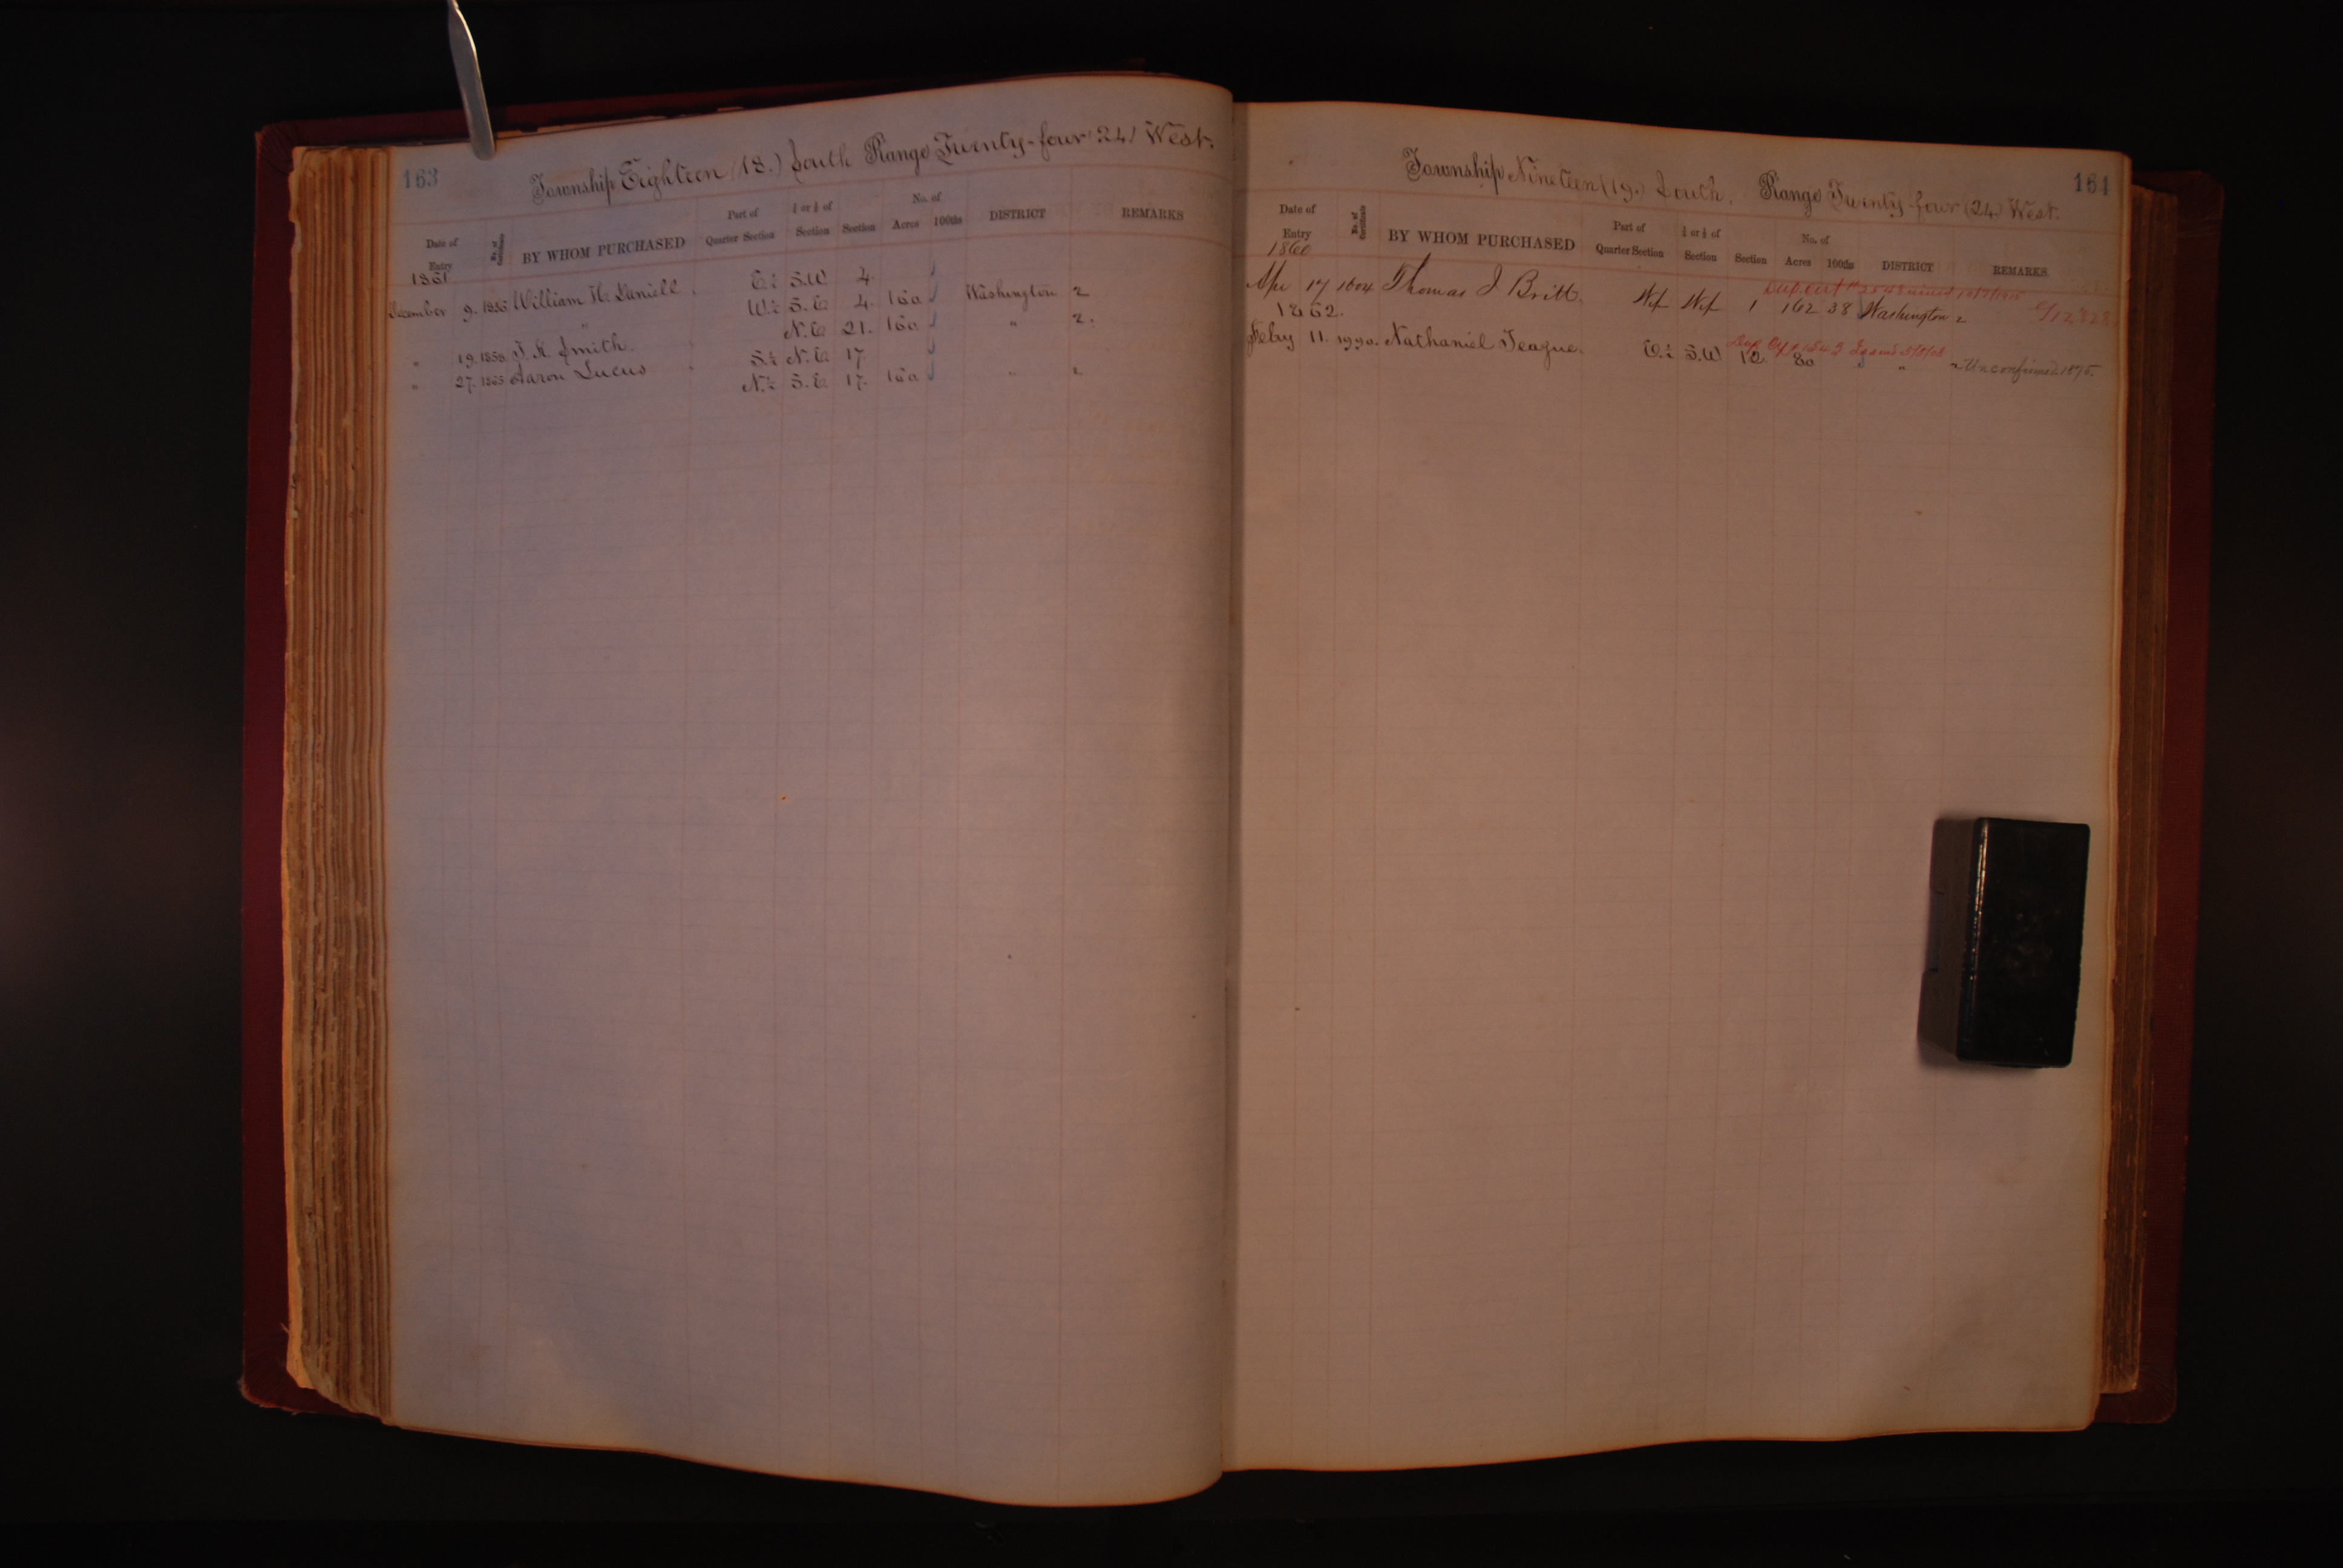 163
Township Eighteen (18.) South Range Twenty-four (24) West.
Date of Entry | No. of Certificate | BY WHOM PURCHASED | Part of Quarter Section | ¼ or ½ of Section | Section | No. of Acres 100ths | DISTRICT | REMARKS
1861
December 9. 1836 William H. Daniell E.½ S.W 4.
W.½ S.E 4. 160 Washington 2
" N.E 21. 160 " 2.
" 19. 1858 J. K. Smith S.½ N.E 17
" 27. 1865 Aaron Lucus N.½ S.E 17. 160 " 2
164
Township Nineteen (19.) South, Range Twenty-four (24) West.
Date of Entry | No. of Certificate | BY WHOM PURCHASED | Part of Quarter Section | ¼ or ½ of Section | Section | No. of Acres 100ths | DISTRICT | REMARKS
1860
Apr 17 1604 Thomas J Britt. 1 162 38 Washington 2
1862.
Feby 11. 1990. Nathaniel Teague. E.½ S.W 12. 80 " " Unconfirmed 1875.